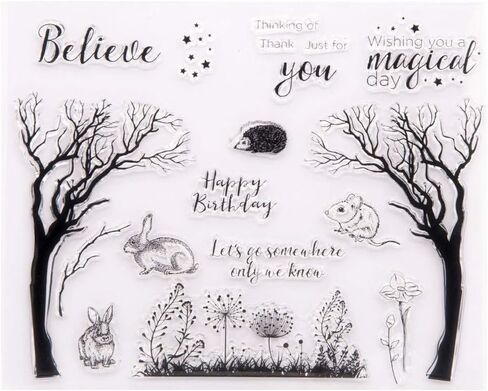 Believe
Thinking of
Thank Just for
you
Wishing you a
magical
day
Happy
Birthday
Let's go somewhere
only we know